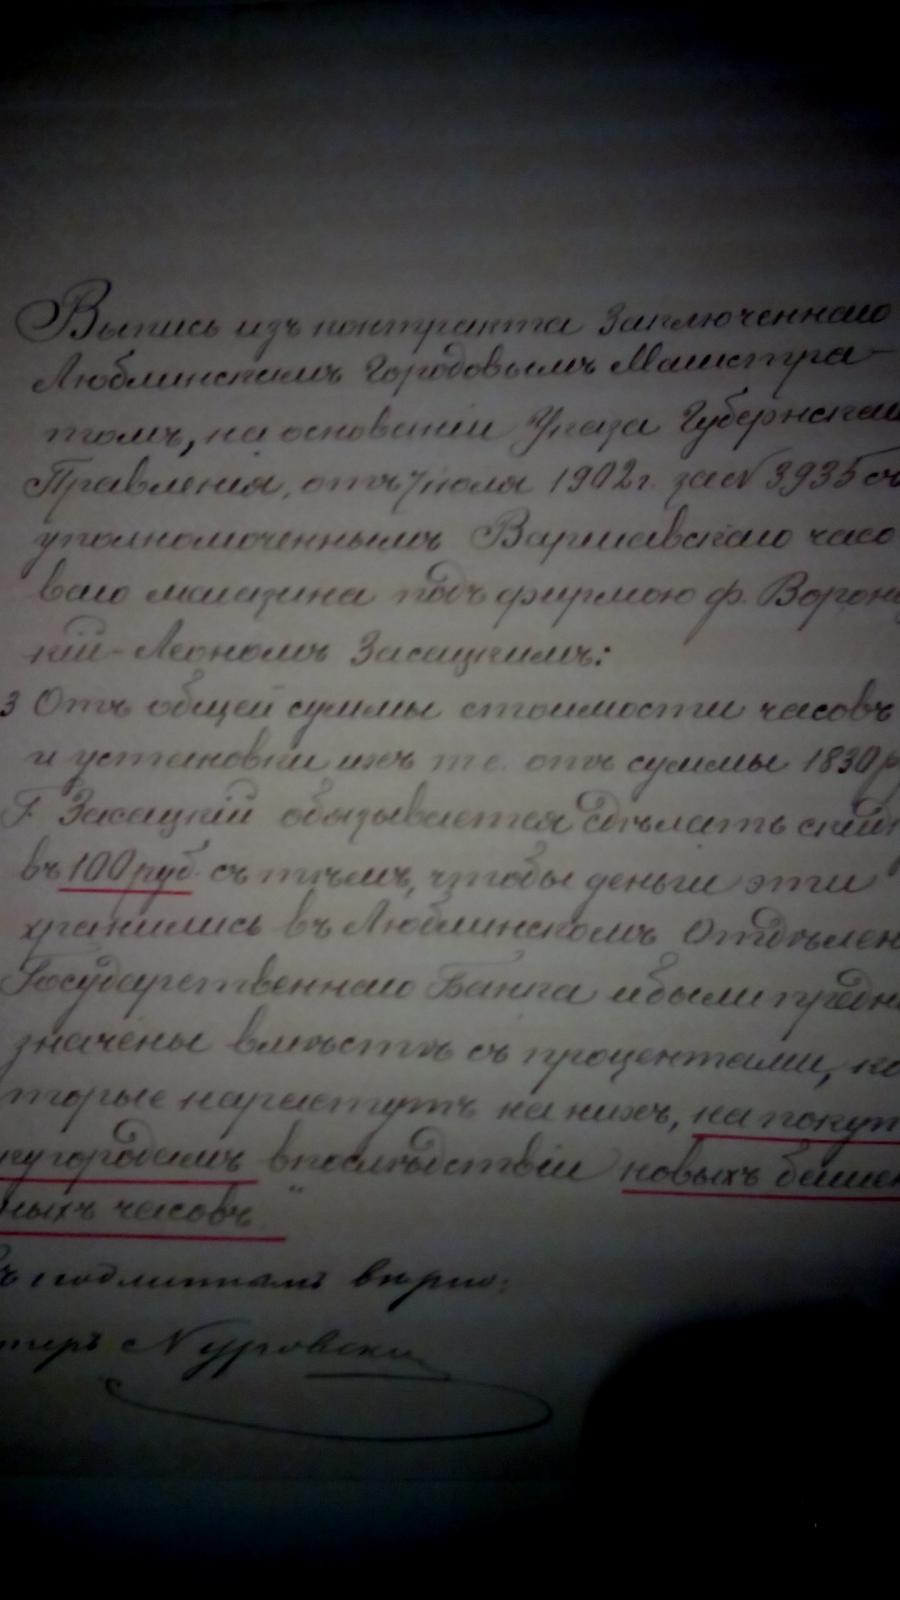 Выпись изъ контракта заключеннаго
Люблинскимъ Городовымъ Магистра-
томъ, на основаніи Указа Губернскаго
Правленія, отъ 7 іюля 1902 г. за № 3935 съ
уполномоченнымъ Варшавскаго часо
ваго магазина подъ фирмою Ф. Воронец
кій - Леономъ Засацкимъ:
3 Отъ общей суммы стоимости часовъ
и установки ихъ т.е. отъ суммы 1830 р
Г. Засацкій обязывается сдѣлать скид
въ 100 руб. съ тѣмъ, чтобы деньги эти
хранились въ Люблинскомъ Отдѣлен
Государственнаго Банка и были предна
значены вмѣстѣ съ процентами, ко
торые наростутъ на нихъ, на покуп
ку городомъ впослѣдствіи новыхъ башен
ныхъ часовъ"
съ подлиннымъ вѣрно: